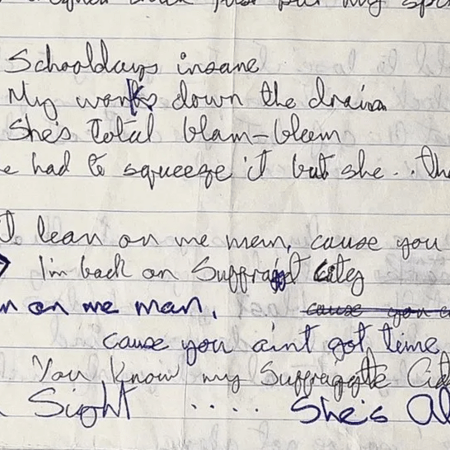 just put my sp
Schooldays insane
My works down the drain
She's Total blam-blam
e had to squeeze it but she.. the
I lean on me man, cause you
I'm back on Suffragat City
n on me man, cause you
cause you aint got time
You know my Suffragette Cit
Sight ..... She's Al